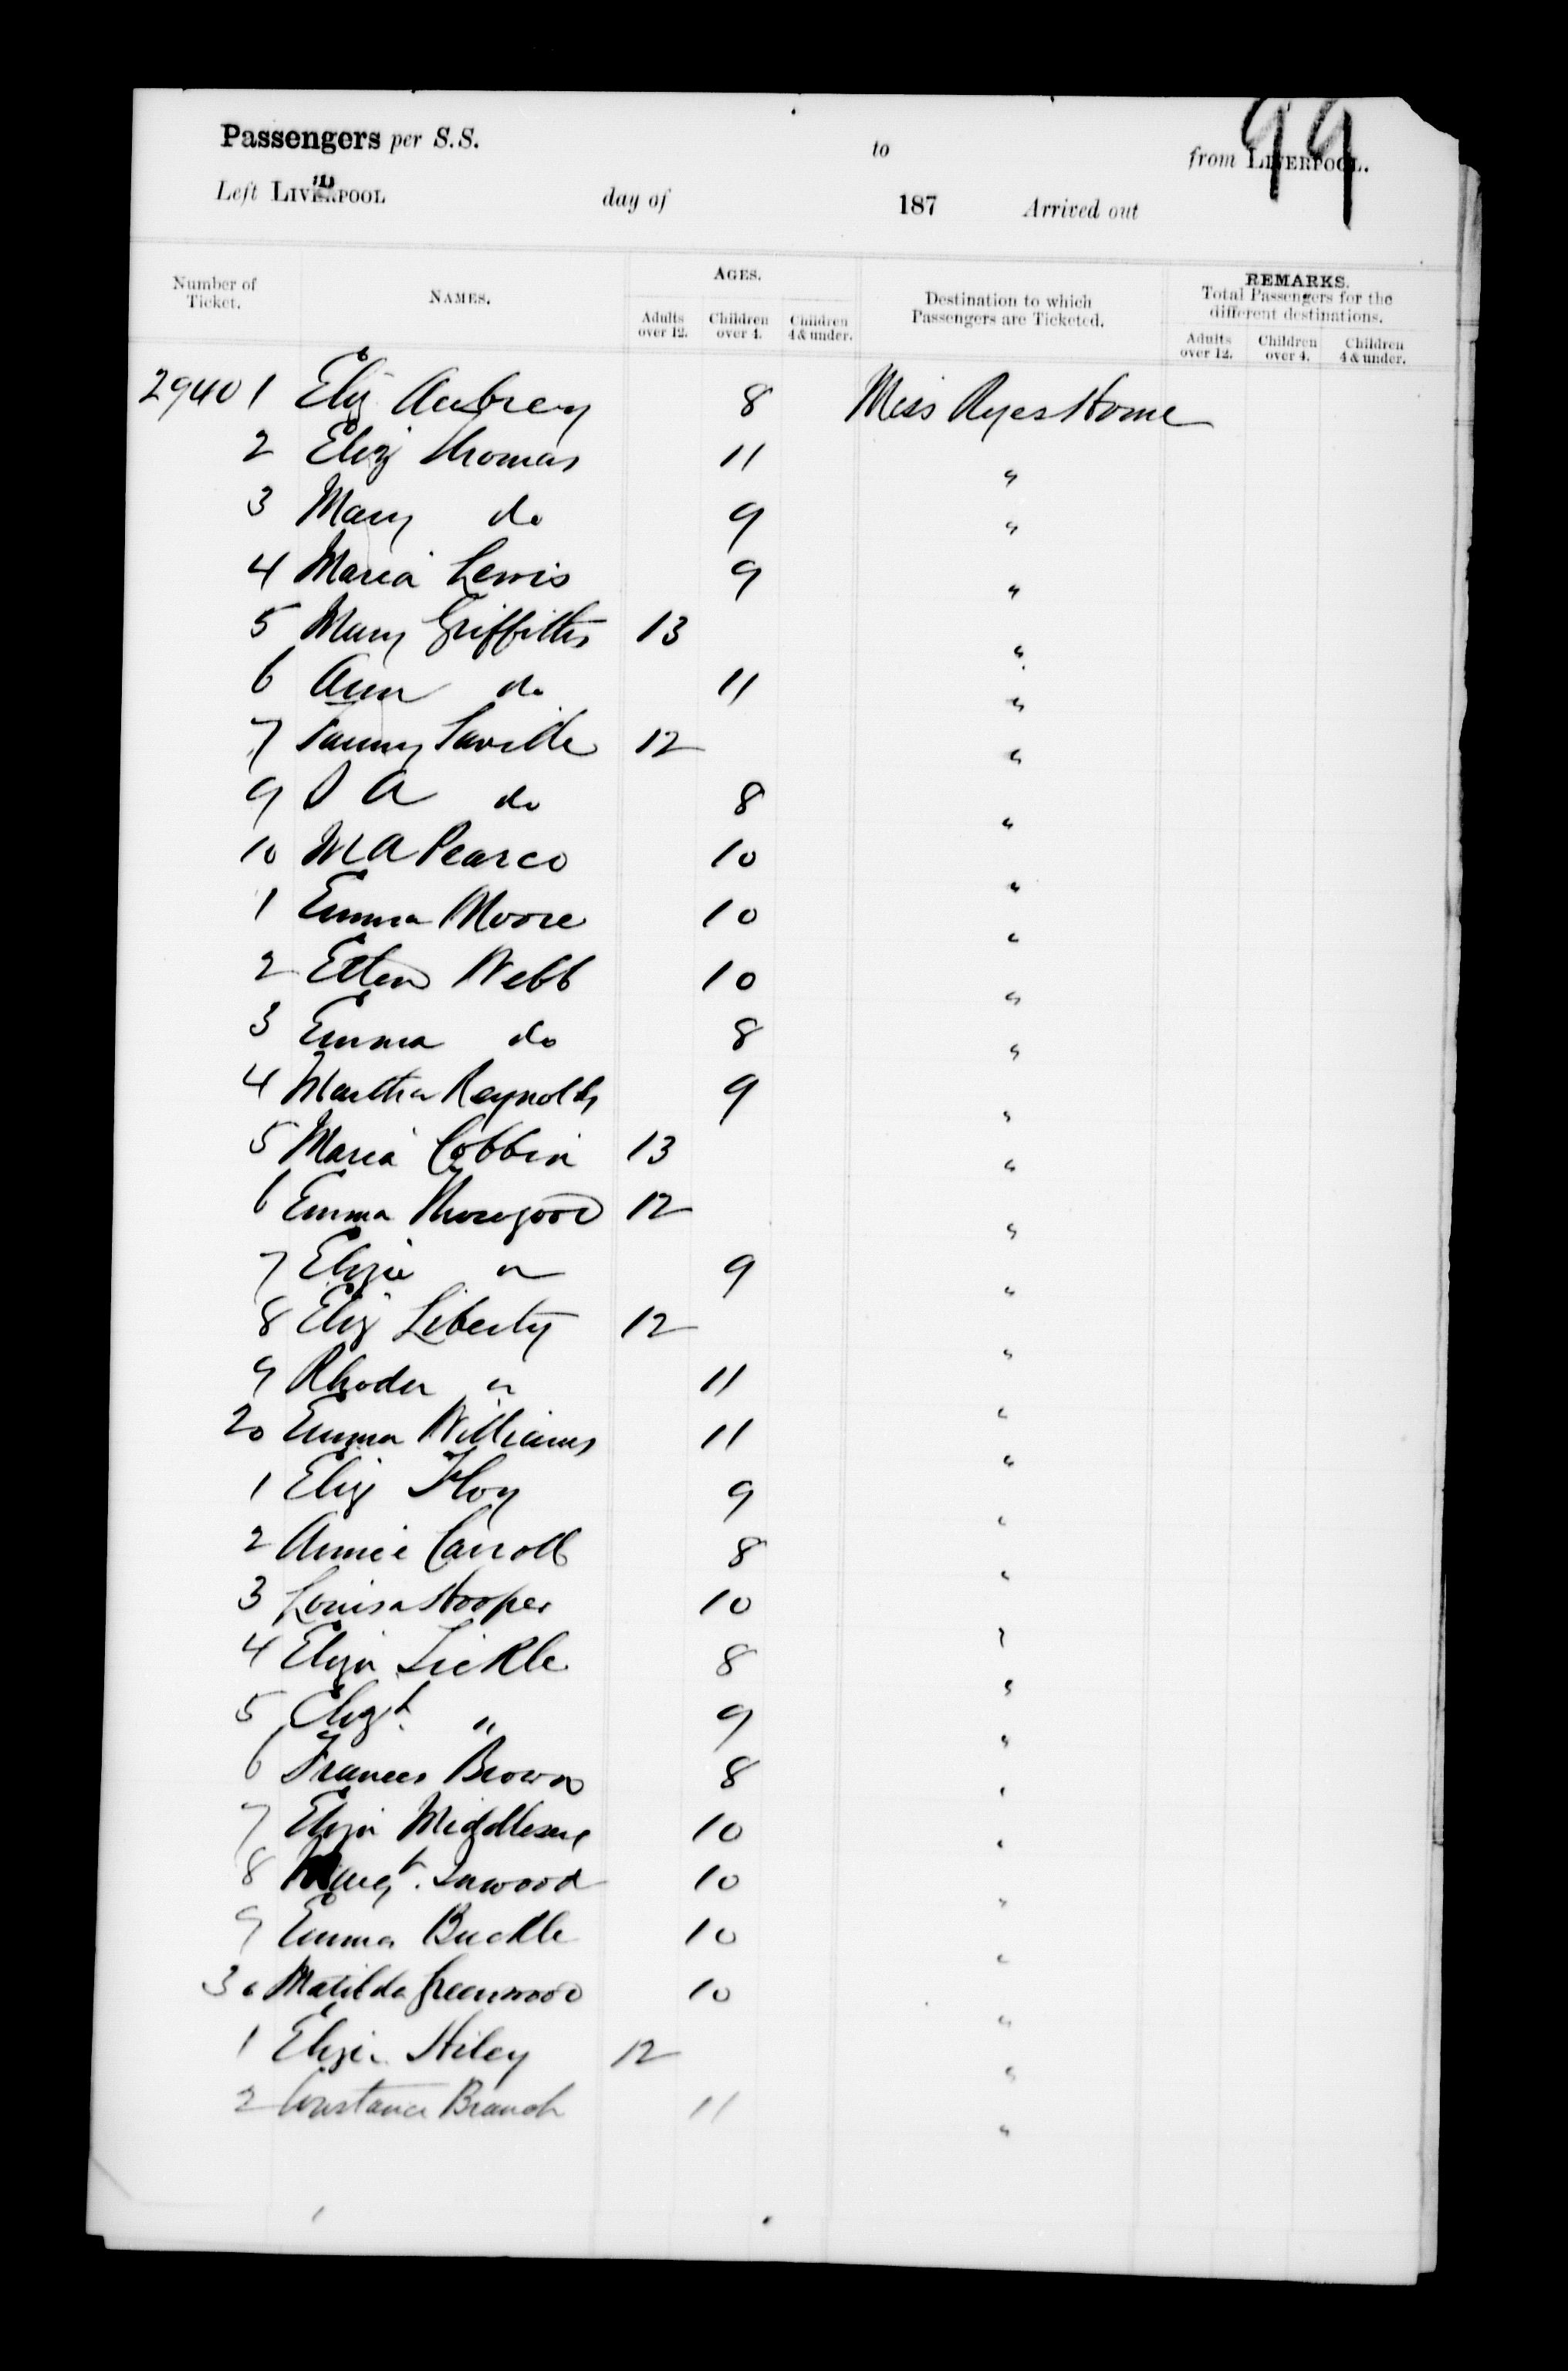 99
Passengers per S.S. to from LIVERPOOL.
Left LIVERPOOL day of 187 Arrived out
Number of Ticket. NAMES. AGES. Destination to which Passengers are Ticketed. REMARKS. Total Passengers for the different destinations.
Adults over 12. Children over 4. Children 4 & under. Adults over 12. Children over 4. Children 4 & under.
2940 1 Eliz Aubrey 8 Miss Ryes Home
2 Eliz Thomas 11 "
3 Mary do 9 "
4 Maria Lewis 9 "
5 Mary Griffiths 13 "
6 Ann do 11 "
7 Fanny Saville 12 "
9 S A do 8 "
10 M A Pearce 10 "
1 Emma Moore 10 "
2 Ellen Webb 10 "
3 Emma do 8 "
4 Martha Reynolds 9 "
5 Maria Cobbin 13 "
6 Emma Thorogood 12 "
7 Eliza " 9 "
8 Eliz Liberty 12 "
9 Rhoda " 11 "
20 Emma Williams 11 "
1 Eliz Floy 9 "
2 Annie Carroll 8 "
3 Louisa Hooper 10 "
4 Eliza Sickle 8 "
5 Elizth " 9 "
6 Frances Brown 8 "
7 Eliza 10 "
8 Margt. Inwood 10 "
9 Emma Buckle 10 "
30 Matilda Greenwood 10 "
1 Eliza Hiley 12 "
2 Constance Branch 11 "